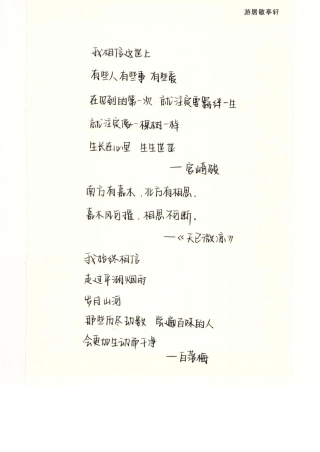 游居敬亭轩
我相信这世上
有些人有些事 有些爱
在见到的第一次 就注定要羁绊一生
就注定像一棵树一样
生长在心里 生生世世
—宫崎骏
南方有嘉木，北方有相思。
嘉木风可摧，相思不可断。
—《天已微凉》
我始终相信
走过平湖烟雨
岁月山河
那些历尽劫数 尝遍百味的人
会更加生动而干净
—白落梅